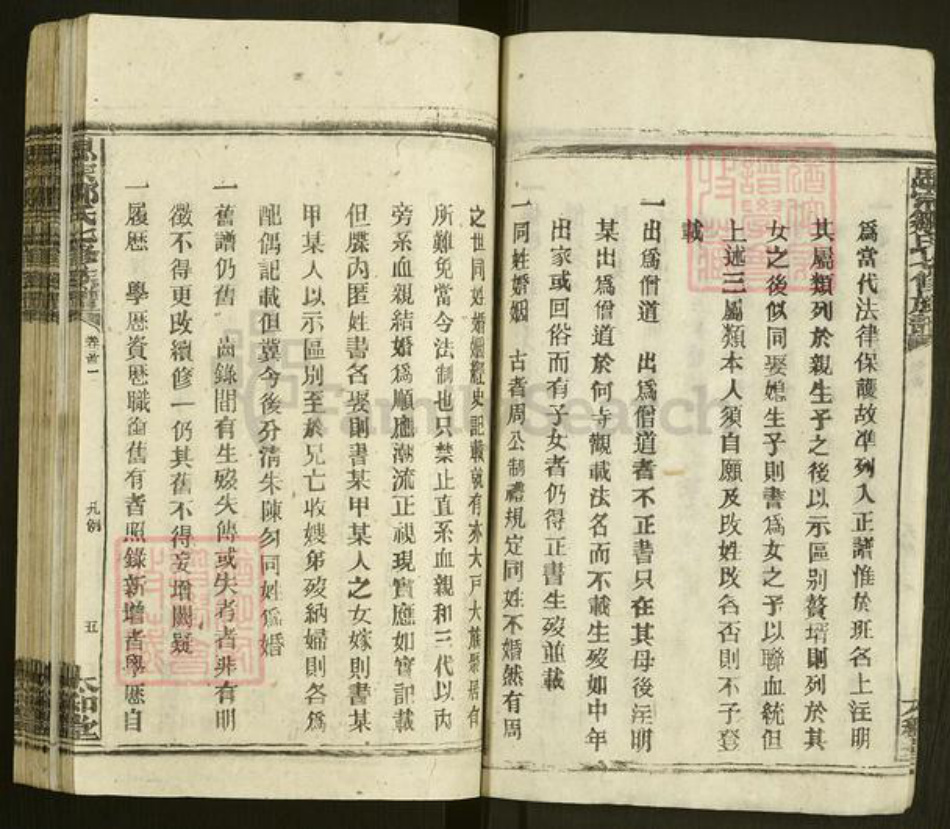 爲當代法律保護故准列入正譜惟於班名上注明
其屬類列於親生子之後以示區别贅壻則列於其
女之後似同娶媳生子則書爲女之子以聯血統但
上述三屬類本人須自願及改姓改名否則不予登
載
一出爲僧道　出爲僧道者不正書只在其母後注明
某出爲僧道於何寺觀載法名而不載生歿如中年
出家或回俗而有子女者仍得正書生歿並載
一同姓婚姻　古者周公制禮規定同姓不婚然有周
之世同姓婚姻經史記載就有亦大戸大族聚居有
所難免當今法制也只禁止直系血親和三代以內
旁系血親結婚爲順應潮流正視現實應如實記載
但牒內匿姓書名娶則書某甲某人之女嫁則書某
甲某人以示區別至於兄亡收嫂弟歿納婦則各爲
配偶記載但冀今後分清朱陳勿同姓爲婚
一舊譜仍舊　齒錄間有生歿失傳或失考者非有明
徵不得更改續修一仍其舊不得妄增闕疑
一履歷　學歷資歷職銜舊有者照錄新增者學歷自
卷首一
凡例
五
太和堂
FamilySearch